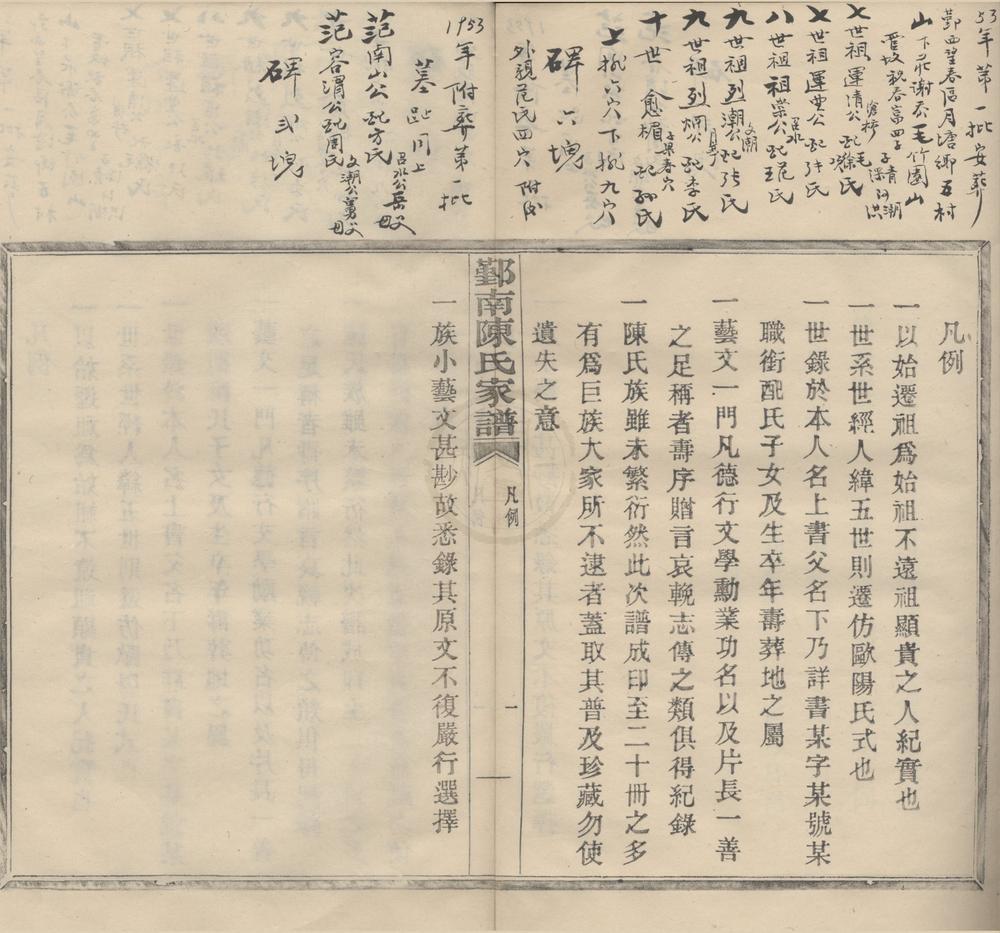 53年第一批安葬
鄞西望春區月塘鄉五村
山下莊謝家毛竹園山
七世祖運清公配徐氏
七世祖運豊公配許氏
八世祖棠公配范氏
呂水
九世祖烈潮公配張氏
文潮
九世祖烈炯公配李氏
十世愈楣配孫氏
上排六穴下排九穴
碑六塊
外親范氏四穴附後
1953年附葬第一批
墓趾同上
范南山公配方氏
呂水公岳父母
范容渭公配周氏
文潮公舅父母
碑弍塊
凡例
一以始遷祖爲始祖不遠祖顯貴之人紀實也
一世系世經人緯五世則遷仿歐陽氏式也
一世錄於本人名上書父名下乃詳書某字某號某
職銜配氏子女及生卒年壽葬地之屬
一藝文一門凡德行文學勳業功名以及片長一善
之足稱者壽序贈言哀輓志傳之類俱得紀錄
一陳氏族雖未繁衍然此次譜成印至二十冊之多
有爲巨族大家所不逮者蓋取其普及珍藏勿使
遺失之意
鄞南陳氏家譜
凡例
一
一族小藝文甚尠故悉錄其原文不復嚴行選擇